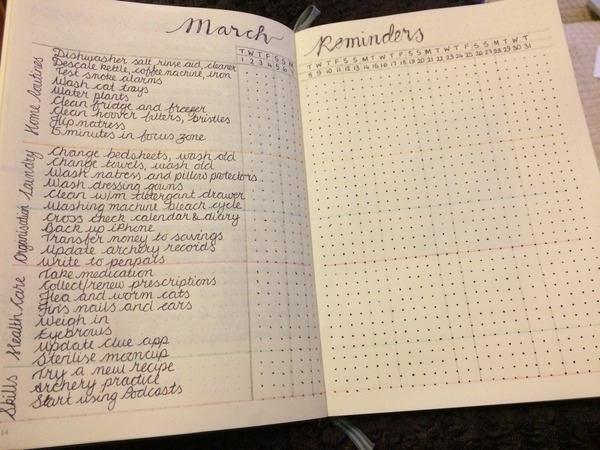 March
T W T F S S M
1 2 3 4 5 6 7
Home Routines
Dishwasher salt, rinse aid, cleaner
Descale kettle, coffee machine, iron
Test smoke alarms
Wash cat trays
Water plants
Clean fridge and freezer
Clean hoover filters, bristles
Flip matress
15 minutes in focus zone
Laundry
Change bedsheets, wash old
Change towels, wash old
Wash matress and pillow protectors
Wash dressing gowns
Clean w/m detergent drawer
Washing machine bleach cycle
Organisation
Cross check calendar & diary
Back up iPhone
Transfer money to savings
Update archery records
Write to penpals
Health Care
Take medication
Collect/renew prescriptions
Flea and worm cats
Trim nails and ears
Weigh in
Eyebrows
Update clue app
Sterilise mooncup
Skills
Try a new recipe
Archery practice
Start using Podcasts
Reminders
T W T F S S M T W T F S S M T W T F S S M T W T
8 9 10 11 12 13 14 15 16 17 18 19 20 21 22 23 24 25 26 27 28 29 30 31